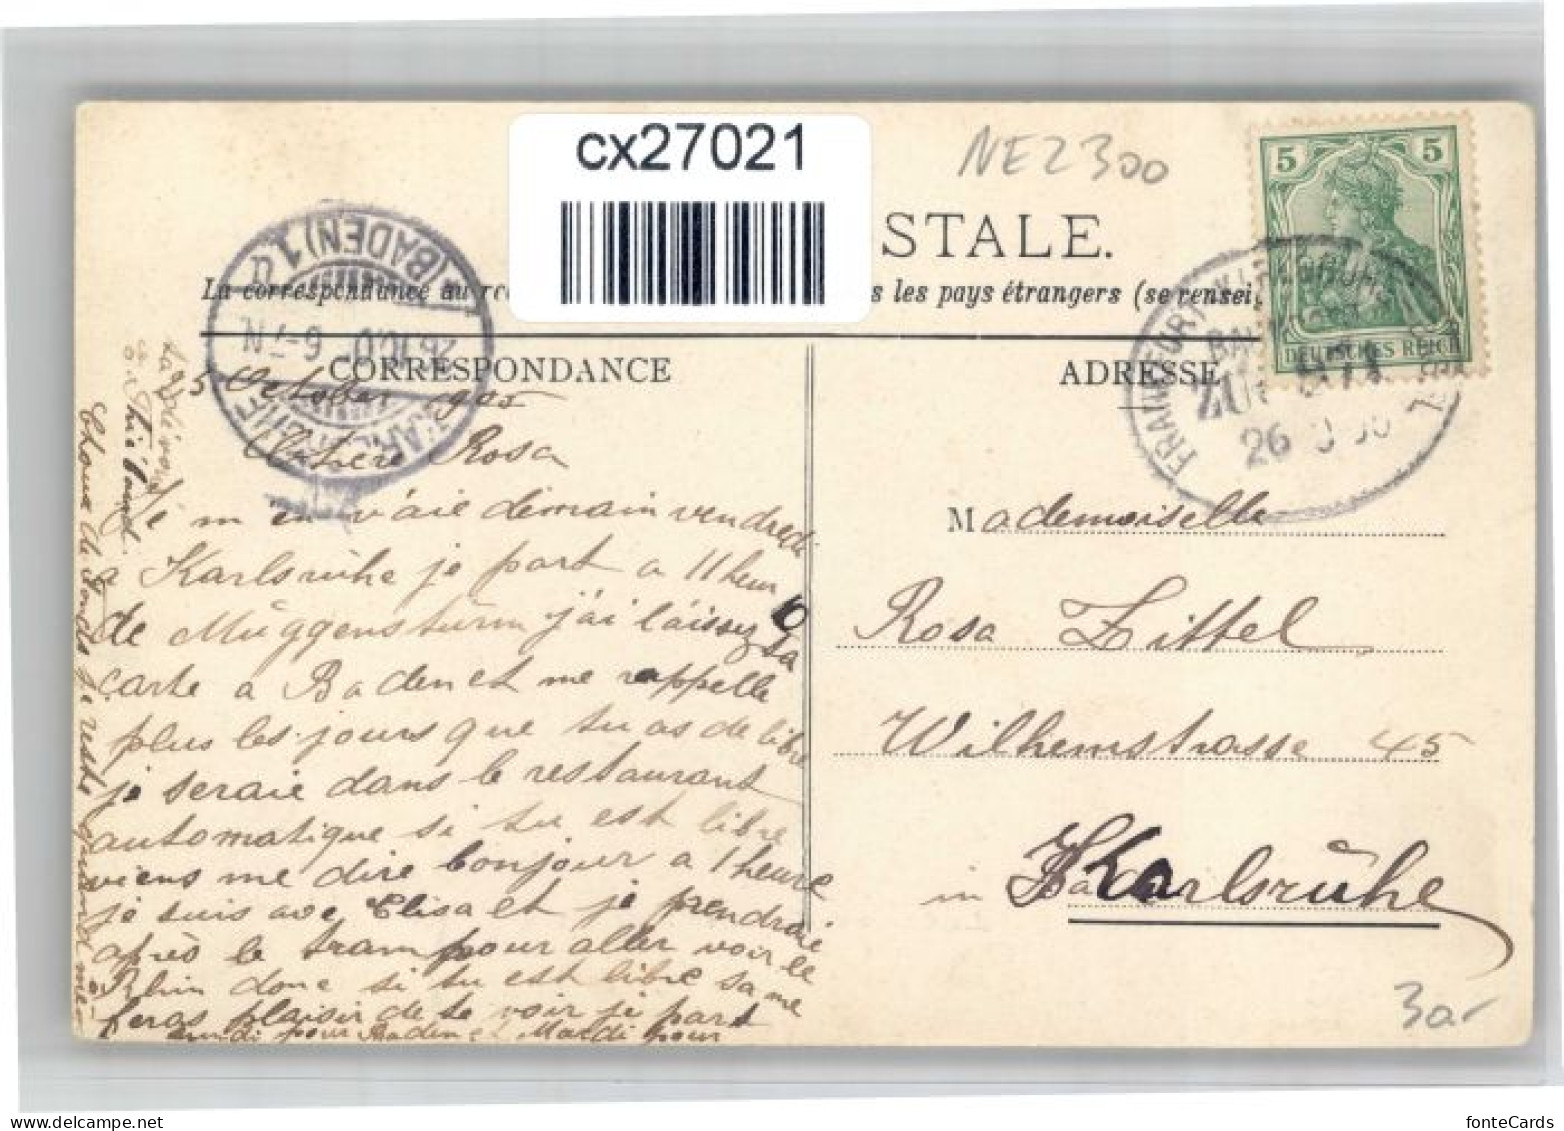 cx27021
NE2300
STALE.
La correspondance au
s les pays étrangers (se rensei
CORRESPONDANCE
ADRESSE
5
5
DEUTSCHES REICH
(BADEN) 1
6-7N
KARLSRUHE
ZUG
26
October 1905
Rosa
Je m en vàie dimain vendredi
a Karlsrùhe je part a 11 heur
de Müggenstürm j'ai làissez la
carte a Baden et me rappelle
plus les jours que tu as de libre
je seraie dans le restaurant
automatique si tu est libre
viens me dire bonjour a 1 heure
je suis avec Elisa et je prendrai
après le tram pour aller voir le
Rhin donc si tu est libre sa me
feras plaisir de te voir je part
pour Baden et Mardi pour
Mademoiselle
Rosa Zittel
Wilhemstrasse 45
in Karlsrühe
3ar
fonteCards